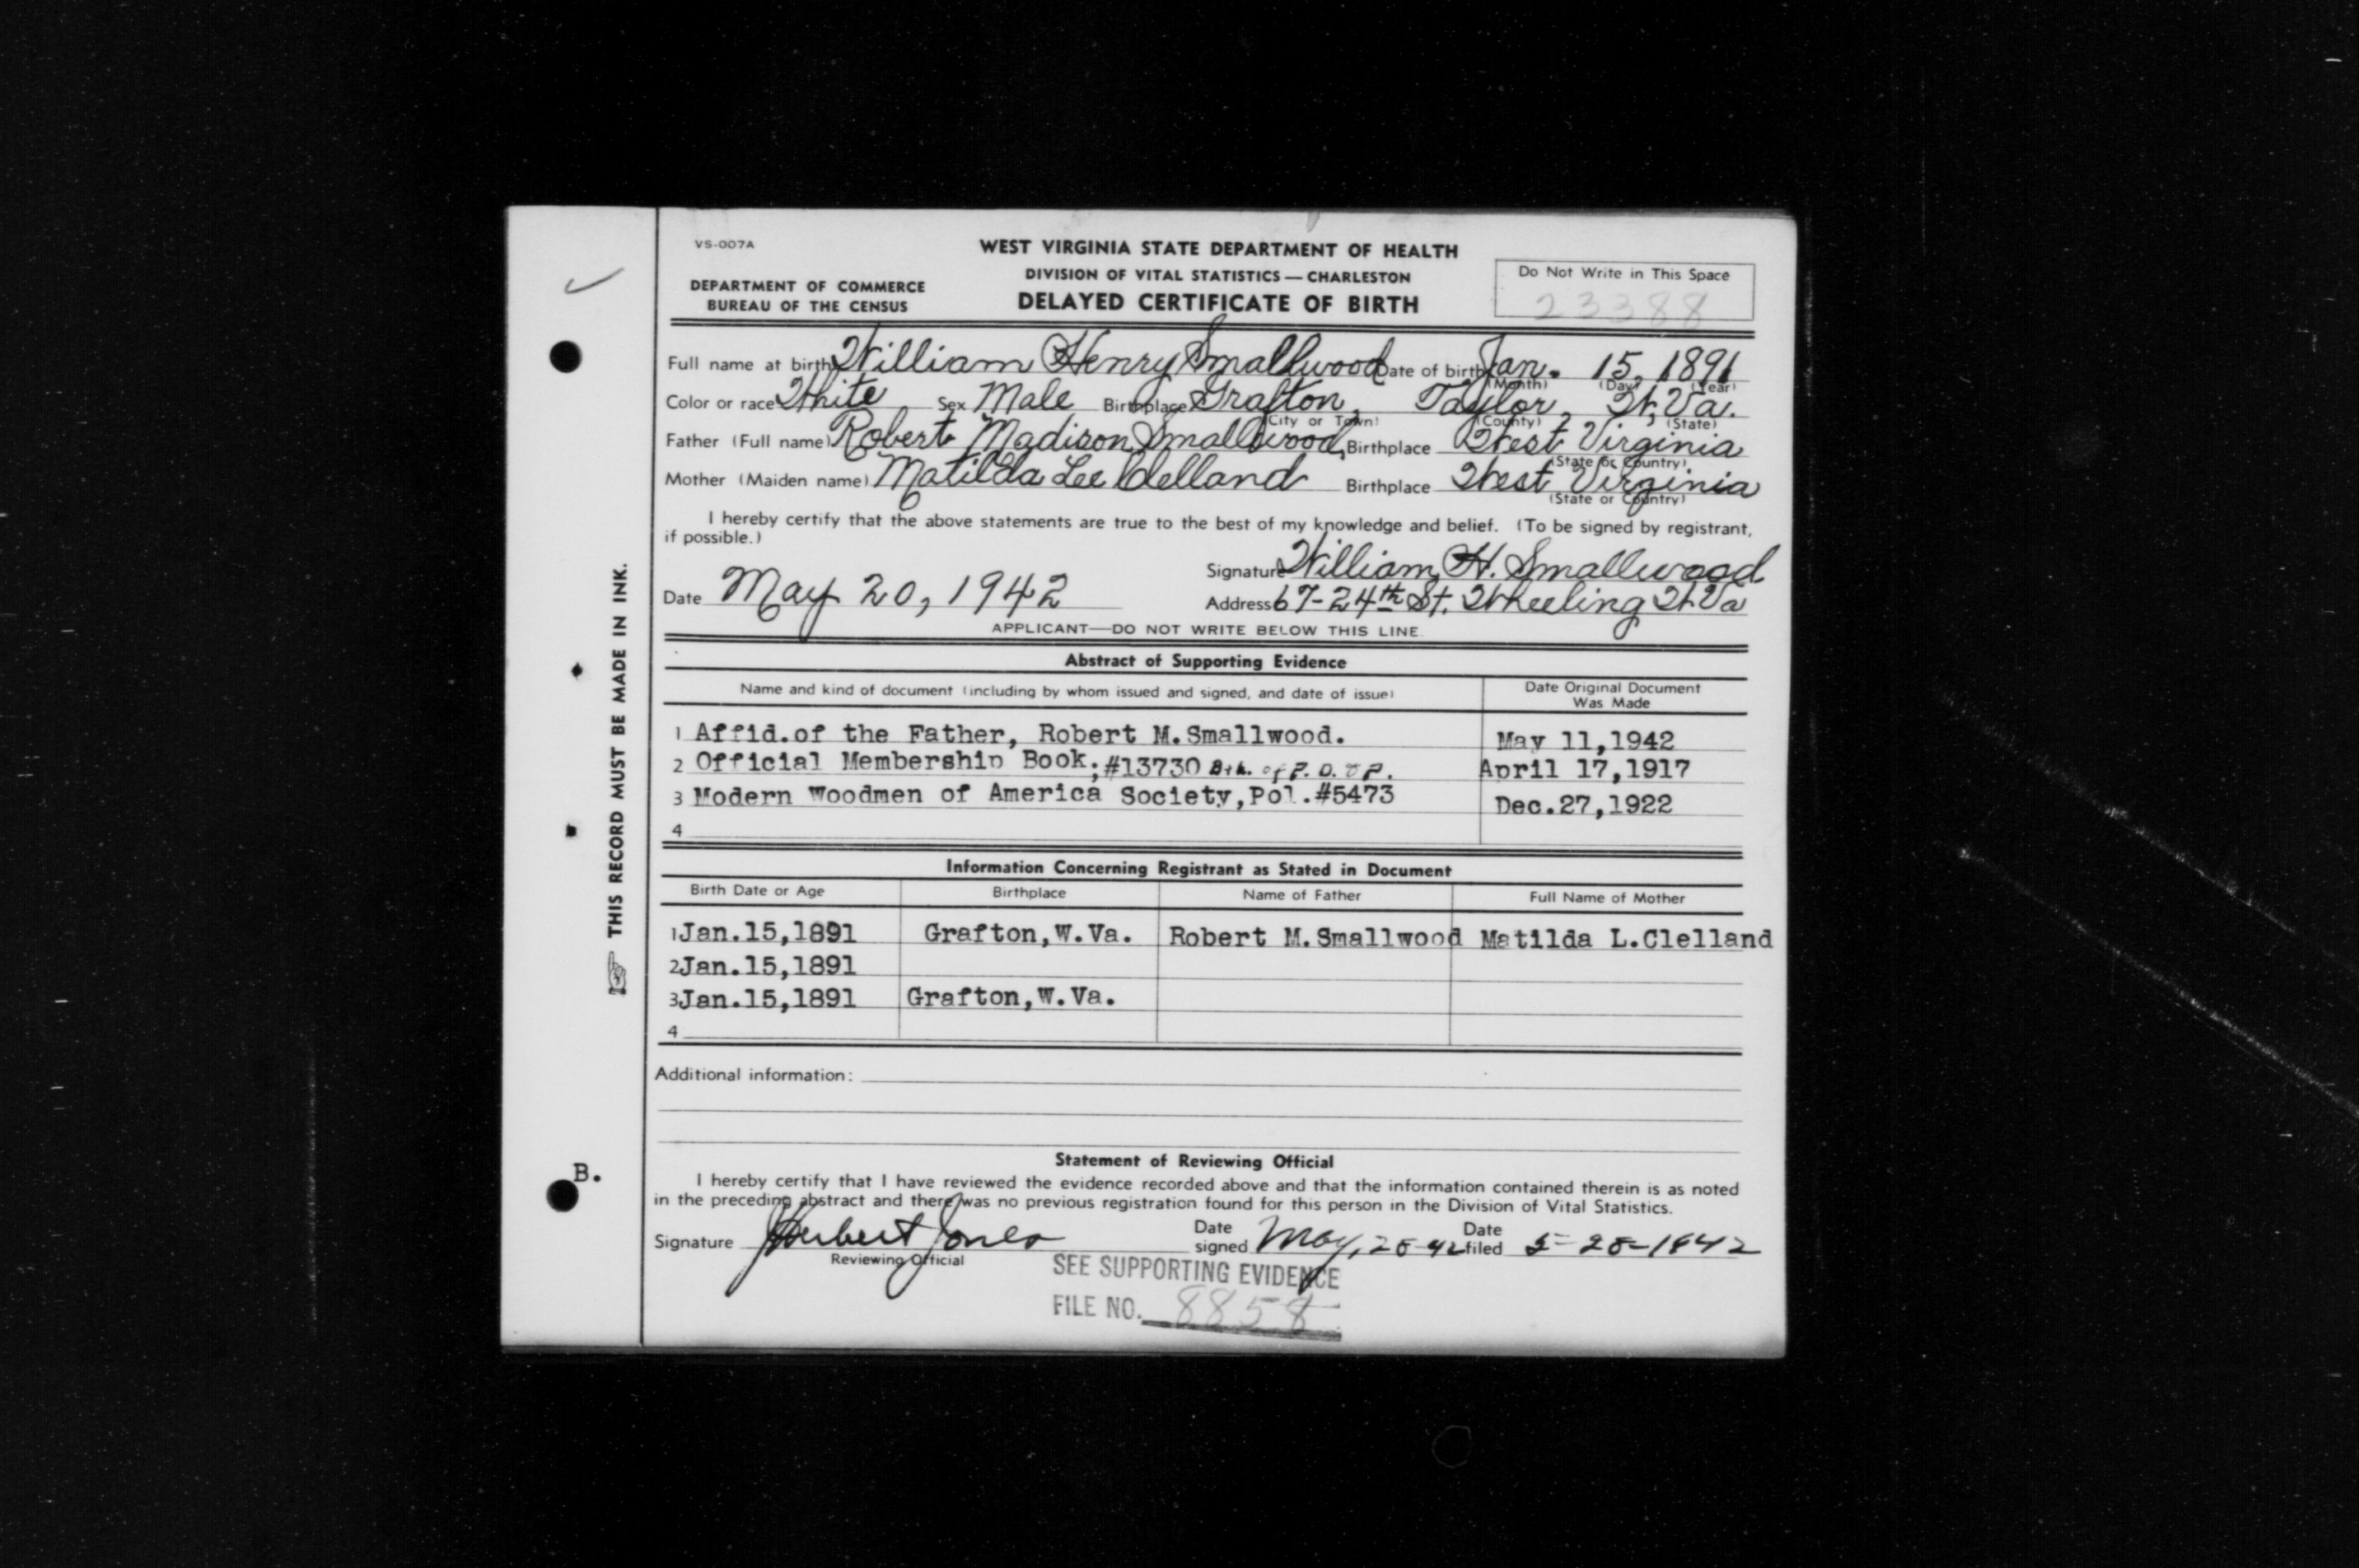 VS-007A
WEST VIRGINIA STATE DEPARTMENT OF HEALTH
DIVISION OF VITAL STATISTICS — CHARLESTON
DELAYED CERTIFICATE OF BIRTH
DEPARTMENT OF COMMERCE
BUREAU OF THE CENSUS
Do Not Write in This Space
23388
Full name at birth William Henry Smallwood Date of birth Jan. 15, 1891
(Month) (Day) (Year)
Color or race White Sex Male Birthplace Grafton, Taylor, W. Va.
(City or Town) (County) (State)
Father (Full name) Robert Madison Smallwood, Birthplace West Virginia
(State or Country)
Mother (Maiden name) Matilda Lee Clelland Birthplace West Virginia
(State or Country)
I hereby certify that the above statements are true to the best of my knowledge and belief. (To be signed by registrant,
if possible.)
Signature William H. Smallwood
Date May 20, 1942 Address 67-24th St. Wheeling W. Va
APPLICANT—DO NOT WRITE BELOW THIS LINE.
Abstract of Supporting Evidence
Name and kind of document (including by whom issued and signed, and date of issue) Date Original Document
Was Made
1 Affid.of the Father, Robert M.Smallwood. May 11,1942
2 Official Membership Book;#13730 Bth. of P. D. & P. April 17,1917
3 Modern Woodmen of America Society,Pol.#5473 Dec.27,1922
4
Information Concerning Registrant as Stated in Document
Birth Date or Age Birthplace Name of Father Full Name of Mother
1 Jan.15,1891 Grafton,W.Va. Robert M.Smallwood Matilda L.Clelland
2 Jan.15,1891
3 Jan.15,1891 Grafton,W.Va.
4
Additional information:
Statement of Reviewing Official
I hereby certify that I have reviewed the evidence recorded above and that the information contained therein is as noted
in the preceding abstract and there was no previous registration found for this person in the Division of Vital Statistics.
Signature Herbert Jones Date signed May, 28-42 Date filed 5-28-1942
Reviewing Official
SEE SUPPORTING EVIDENCE
FILE NO. 8858
THIS RECORD MUST BE MADE IN INK.
B.